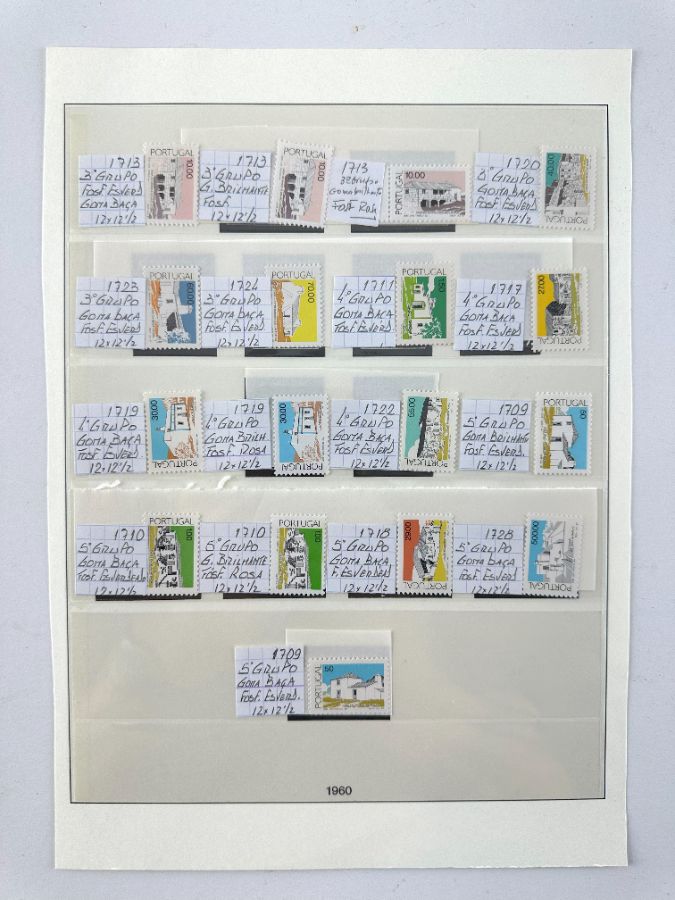 1713
3º GRUPO
FOSF. ESVERD
GOMA BAÇA
12 x 12 1/2
PORTUGAL
10.00
1713
3º GRUPO
G. BRILHANTE
FOSF
12 x 12 1/2
PORTUGAL
10.00
1713
FOSF. ROSA
10.00
PORTUGAL
1720
GOMA BAÇA
FOSF. ESVERD
12 x 12 1/2
40.00
PORTUGAL
1723
3º GRUPO
GOMA BAÇA
FOSF. ESVERD
12 x 12 1/2
PORTUGAL
60.00
1724
3º GRUPO
GOMA BAÇA
FOSF. ESVERD
12 x 12 1/2
PORTUGAL
70.00
1711
4º GRUPO
GOMA BAÇA
FOSF. ESVERD
PORTUGAL
1.50
1717
4º GRUPO
GOMA BAÇA
FOSF. ESVERD
12 x 12 1/2
27.00
PORTUGAL
1719
4º GRUPO
GOMA BAÇA
FOSF. ESVERD
12 x 12 1/2
30.00
PORTUGAL
1719
4º GRUPO
GOMA BRILH.
FOSF. ROSA
12 x 12 1/2
30.00
PORTUGAL
1722
4º GRUPO
GOMA BAÇA
FOSF. ESVERD
12 x 12 1/2
55.00
PORTUGAL
1709
5º GRUPO
GOMA BRILHANTE
FOSF. ESVERD.
12 x 12 1/2
50
PORTUGAL
1710
5º GRUPO
GOMA BAÇA
12 x 12 1/2
PORTUGAL
100
1710
5º GRUPO
G. BRILHANTE
FOSF. ROSA
12 x 12 1/2
PORTUGAL
100
1718
5º GRUPO
GOMA BAÇA
F. ESVERDEA
12 x 12 1/2
29.00
PORTUGAL
1728
5º GRUPO
GOMA BAÇA
FOSF. ESVERD
12 x 12 1/2
500.00
PORTUGAL
1709
5º GRUPO
GOMA BAÇA
FOSF. ESVERD.
12 x 12 1/2
50
PORTUGAL
1960